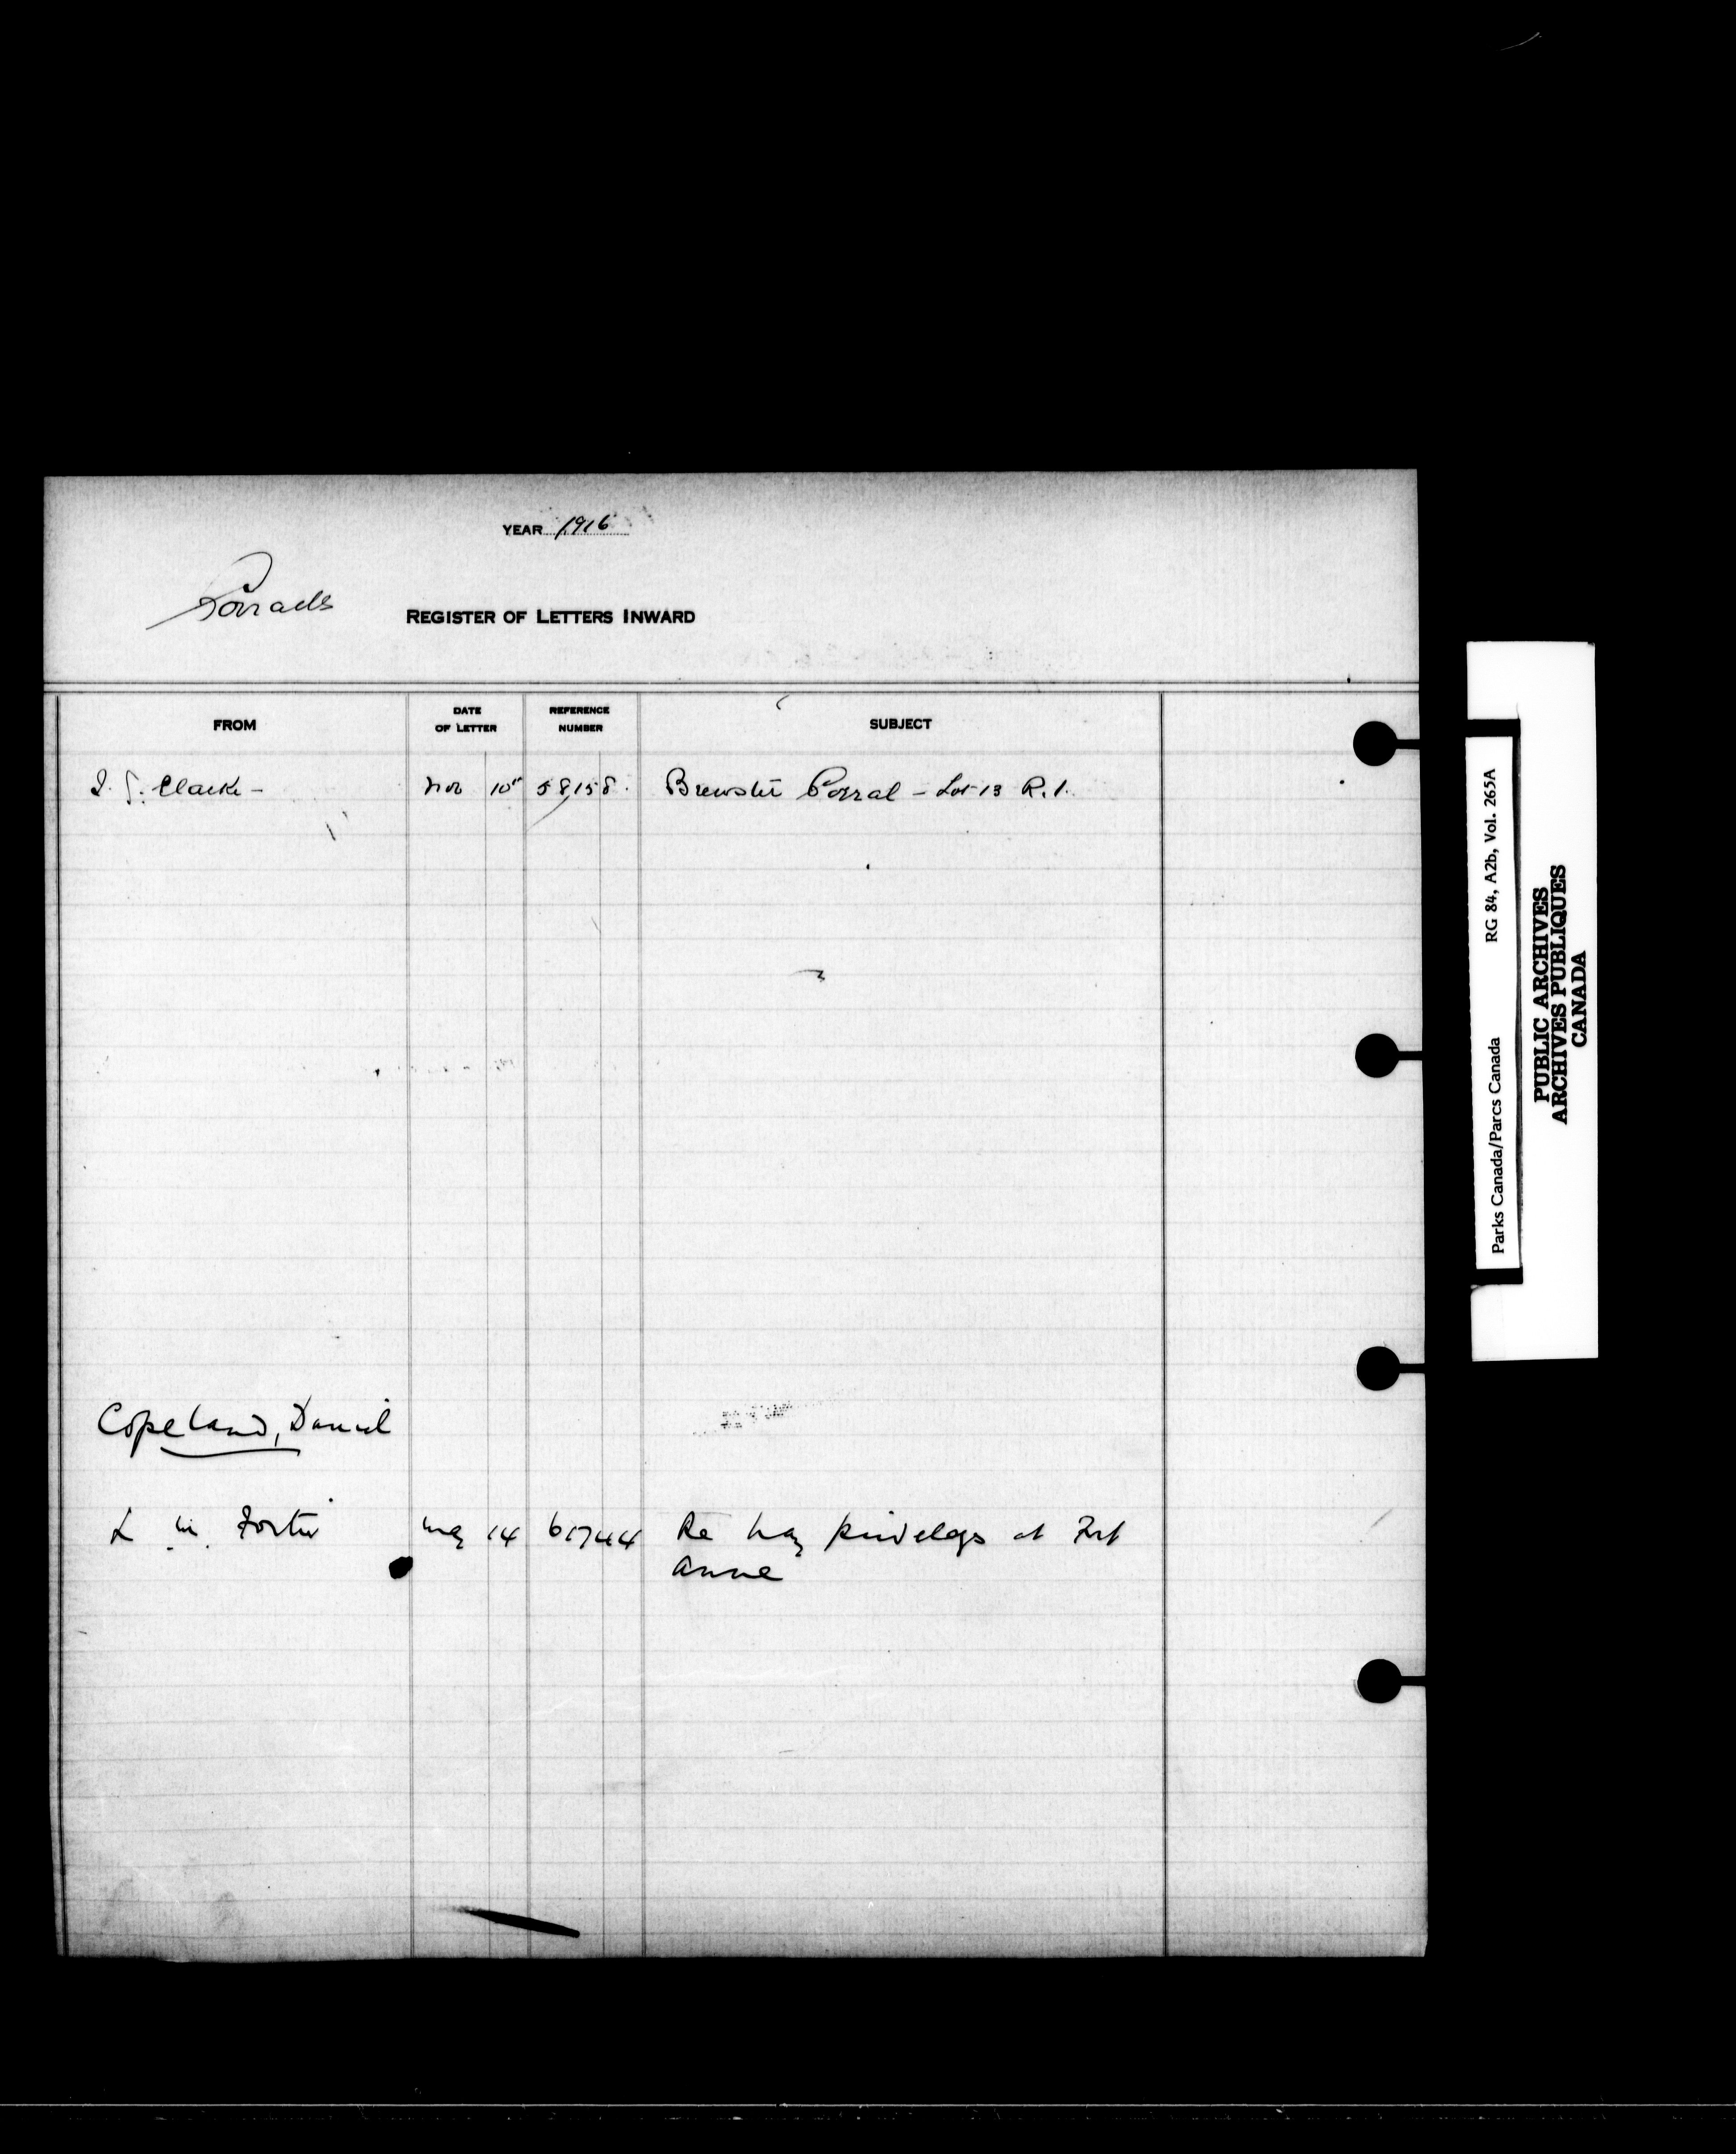 YEAR 1916
Corrals
REGISTER OF LETTERS INWARD
FROM DATE OF LETTER REFERENCE NUMBER SUBJECT
S. J. Clarke - Nov 10 58158. Brewster Corral - Lot 13 R.1.
Copeland, Daniel
L M Fortier May 14 61744 Re hay privileges at Fort
Anne
Parks Canada/Parcs Canada RG 84, A2b, Vol. 265A
PUBLIC ARCHIVES
ARCHIVES PUBLIQUES
CANADA